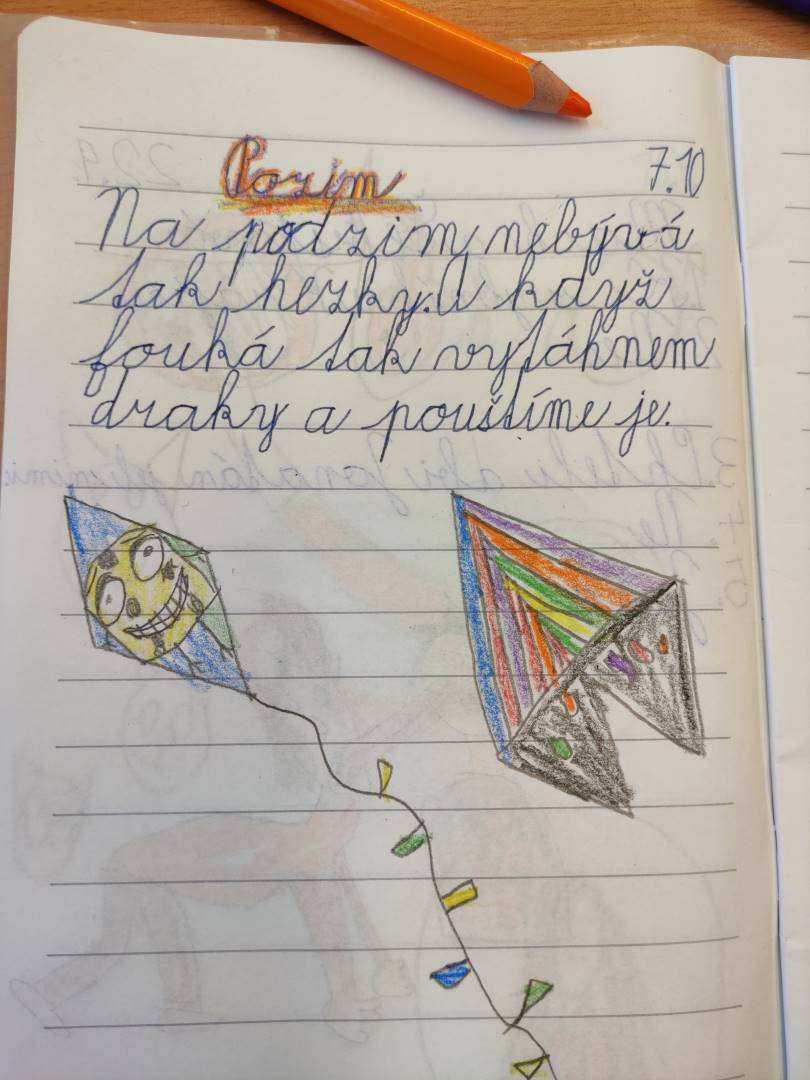 Pozim
7.10
Na podzim nebývá
tak hezky. A když
fouká tak vytáhnem
draky a pouštíme je.